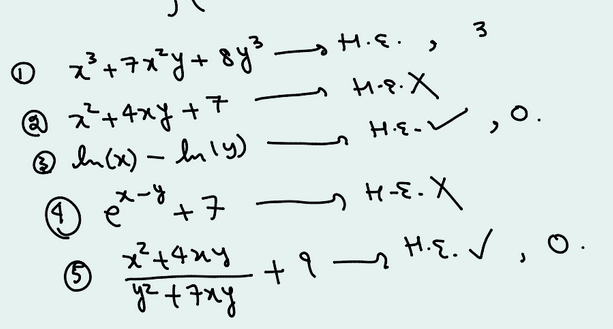 ① x³ + 7x²y + 8y³ → H.E. , 3
② x² + 4xy + 7 → H.E. X
③ ln(x) − ln(y) → H.E. ✓ , 0.
④ e^(x−y) + 7 → H.E. X
⑤ (x² + 4xy)/(y² + 7xy) + 9 → H.E. ✓ , 0.